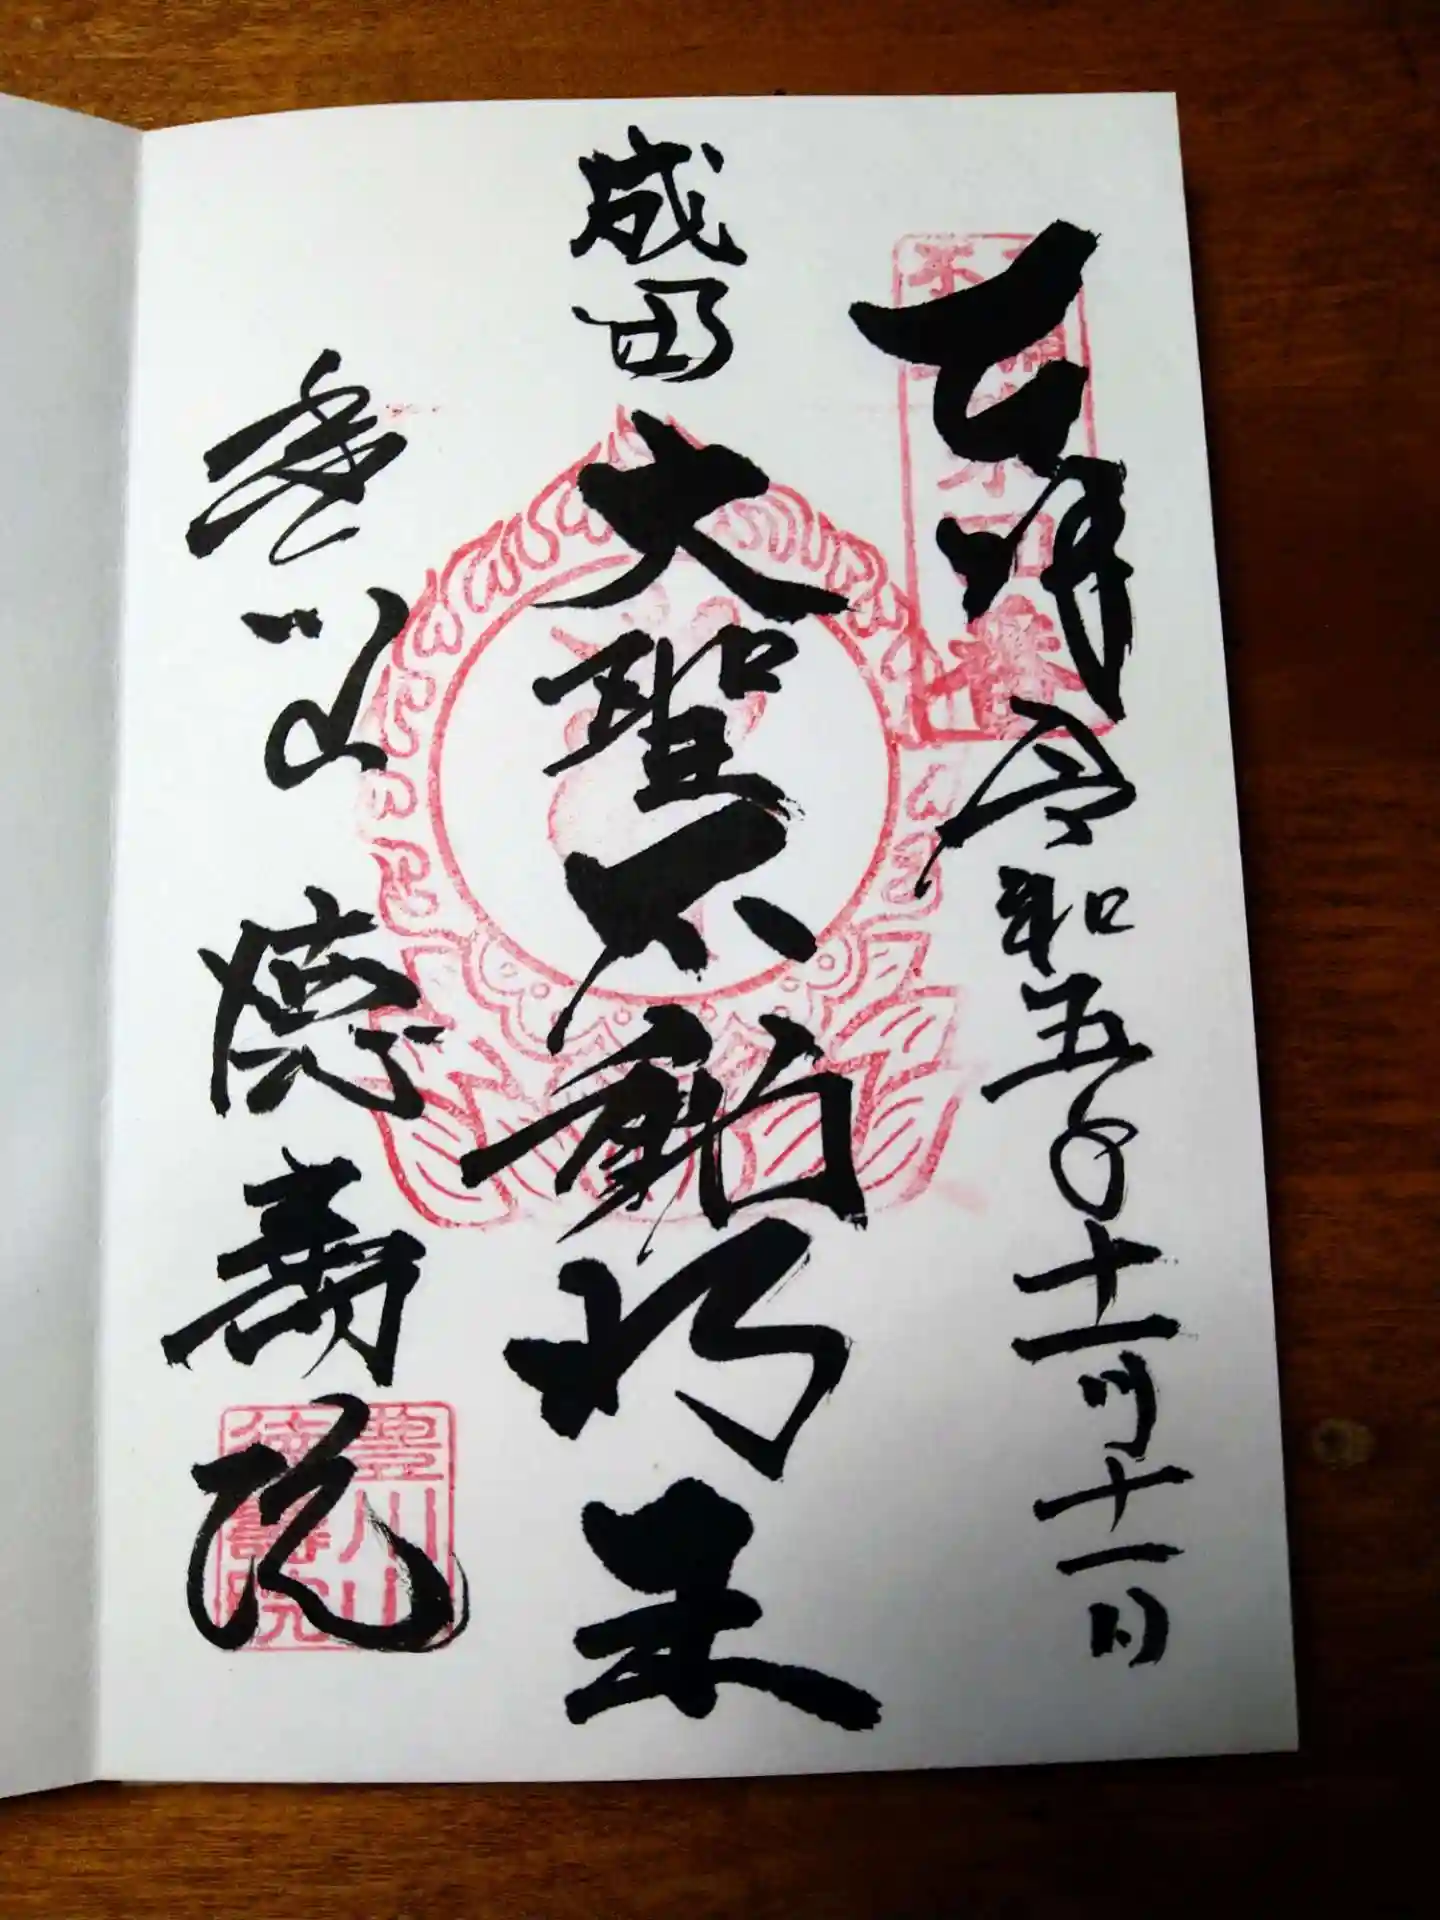 奉拝 令和五年十一月十一日
成田 大聖不動明王
豊川山 徳壽院
豊川山
徳壽院